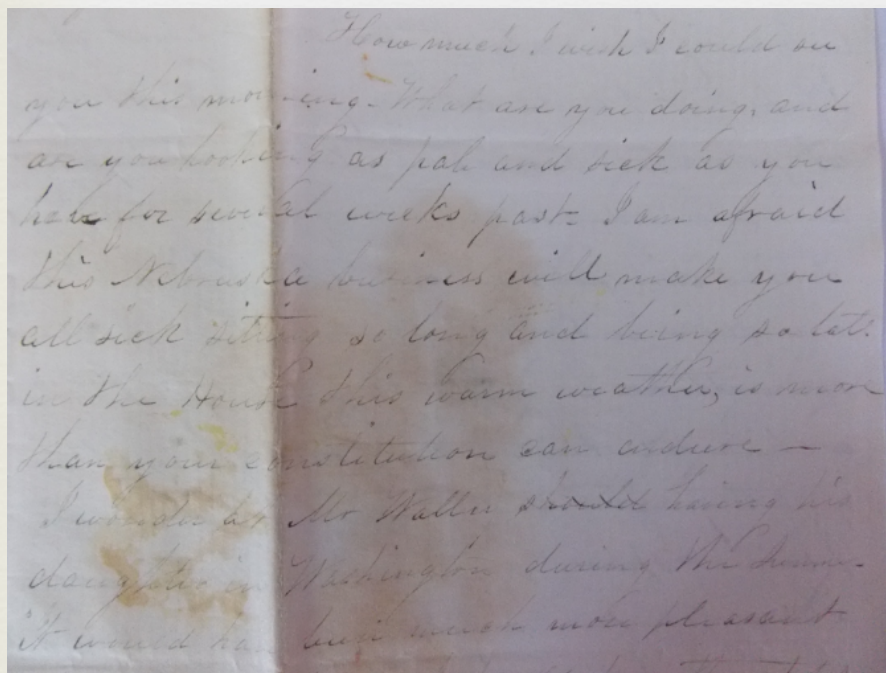 How much I wish I could see
you this morning. What are you doing, and
are you looking as pale and sick as you
have for several weeks past= I am afraid
this Nebraska business will make you
all sick sitting so long and being so late
in the House this warm weather, is more
than your constitution can endure —
I wonder at Mr Waller having his
daughter in Washington during the
it would have been much more pleasant